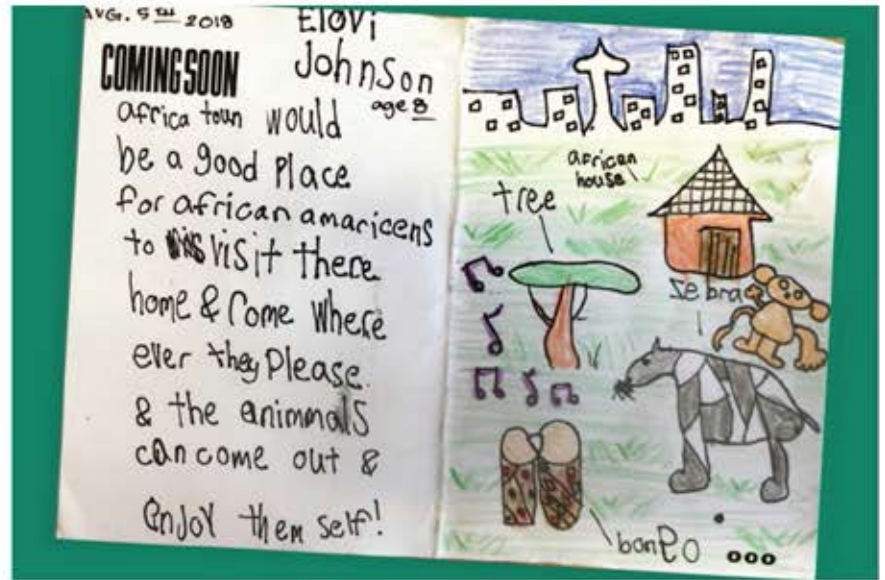 AVG. 5TH 2018
Elovi
Johnson
age 8
COMING SOON
africa toun would
be a good place
for african amaricens
to visit there
home & rome where
ever they Please.
& the animmals
can come out &
enjoy them self!
african
house
tree
zebra
bongo